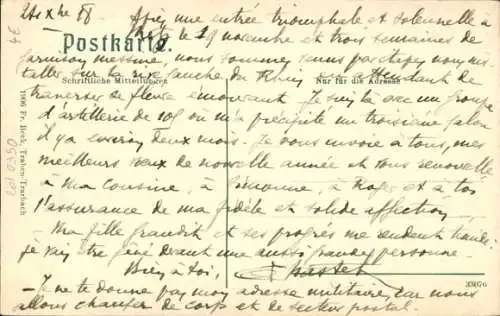 24 X bre 18 Après une entrée triomphale et solennelle à
Postkarte.
Metz le 29 novembre et trois semaines de
garnison messine, nous sommes venus par étapes nous ins-
Schriftliche Mitteilungen
Nur für die Adresse
taller sur la rive gauche du Rhin en attendant de
traverser ce fleuve émouvant. Je suis là avec un groupe
d'artillerie de 105 où m'a précipité un troisième galon
il y a environ deux mois. Je vous envoie à tous, mes
meilleurs vœux de nouvelle année et vous renouvelle
à ma cousine, à Simonne, à Roger et à toi
l'assurance de ma fidèle et solide affection.
Ma fille grandit et ses progrès me rendent
je vais être gêné devant une aussi grande personne.
Bien à toi,
33076
- Je ne te donne pas mon adresse militaire, car nous
allons changer de corps et de secteur postal.
1906 Fr. Beck, Traben-Trarbach